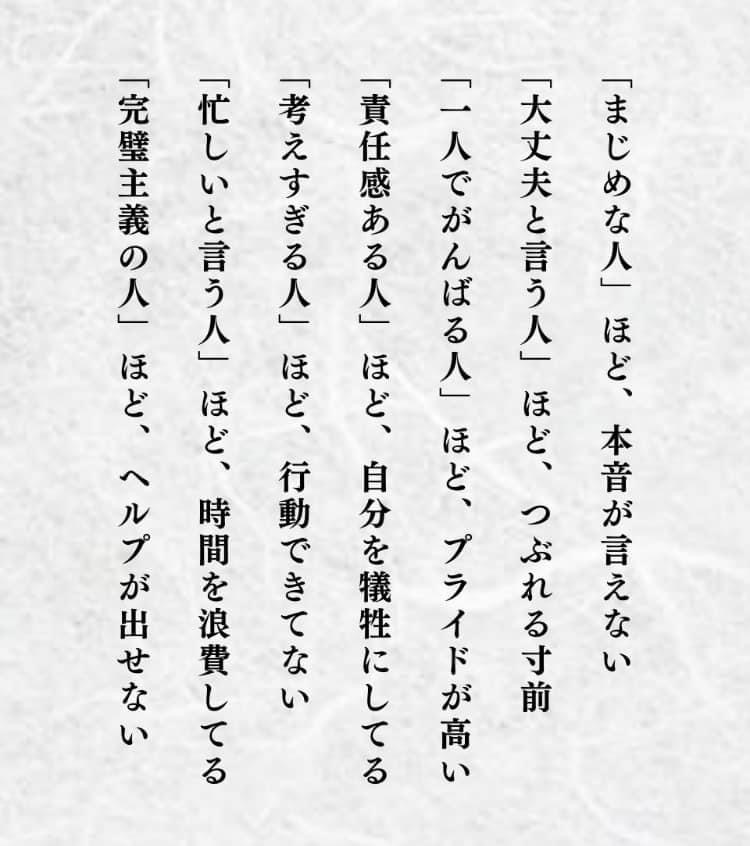 「まじめな人」ほど、本音が言えない
「大丈夫と言う人」ほど、つぶれる寸前
「一人でがんばる人」ほど、プライドが高い
「責任感ある人」ほど、自分を犠牲にしてる
「考えすぎる人」ほど、行動できてない
「忙しいと言う人」ほど、時間を浪費してる
「完璧主義の人」ほど、ヘルプが出せない